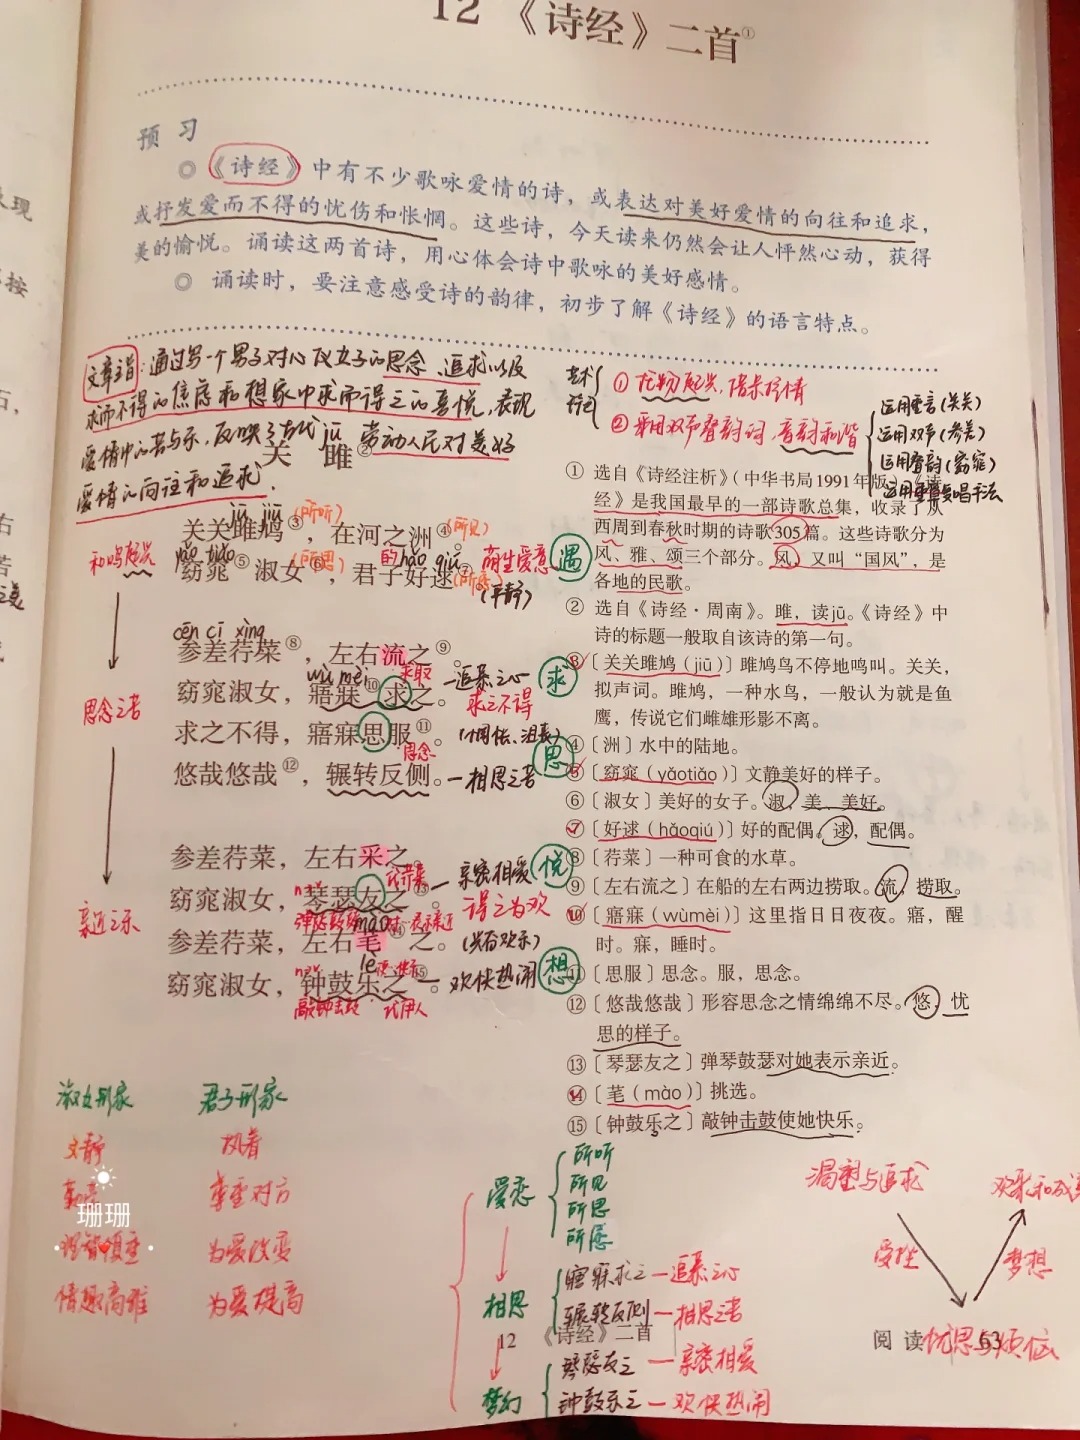 12 《诗经》二首①
预 习
◎ 《诗经》中有不少歌咏爱情的诗，或表达对美好爱情的向往和追求，
或抒发爱而不得的忧伤和怅惘。这些诗，今天读来仍然会让人怦然心动，获得
美的愉悦。诵读这两首诗，用心体会诗中歌咏的美好感情。
◎ 诵读时，要注意感受诗的韵律，初步了解《诗经》的语言特点。
文章主旨：通过写一个男子对心仪女子的思念、追求以及
求而不得的焦虑和想象中求而得之的喜悦，表现
爱情中的苦与乐，反映了古代劳动人民对美好
爱情的向往和追求.
jū
关 雎②
jū jiū
关关雎鸠③，在河之洲④。
(所听)
(所见)
yǎo tiǎo
的hǎo qiú
窈窕⑤淑女⑥，君子好逑⑦。
(所思)
萌生爱意 遇
(平静)
和鸣起兴
cēn cī xìng
参差荇菜⑧，左右流之⑨。
wù mèi 采取
窈窕淑女，寤寐⑩求之。
追慕之心 求
求之不得
求之不得，寤寐思服⑪。
思念
(惆怅、沮丧)
悠哉悠哉⑫，辗转反侧。
相思之苦 思
思念之苦
参差荇菜，左右采之。
窈窕淑女，琴瑟友之⑬。
亲密相爱 悦
得之为欢
mào
参差荇菜，左右芼⑭之。
(共有欢乐)
lè
窈窕淑女，钟鼓乐之⑮。
欢快热闹 想
亲近之乐
艺术
① 托物起兴，借景抒情
② 采用双声叠韵词，音韵和谐
运用重言(关关)
运用双声(参差)
运用叠韵(窈窕)
① 选自《诗经注析》（中华书局1991年版）。《诗
经》是我国最早的一部诗歌总集，收录了从
西周到春秋时期的诗歌305篇。这些诗歌分为
风、雅、颂三个部分。风，又叫“国风”，是
各地的民歌。
② 选自《诗经·周南》。雎，读jū。《诗经》中
诗的标题一般取自该诗的第一句。
③〔关关雎鸠（jiū）〕雎鸠鸟不停地鸣叫。关关，
拟声词。雎鸠，一种水鸟，一般认为就是鱼
鹰，传说它们雌雄形影不离。
④〔洲〕水中的陆地。
⑤〔窈窕（yǎotiǎo）〕文静美好的样子。
⑥〔淑女〕美好的女子。淑，美、美好。
⑦〔好逑（hǎoqiú）〕好的配偶。逑，配偶。
⑧〔荇菜〕一种可食的水草。
⑨〔左右流之〕在船的左右两边捞取。流，捞取。
⑩〔寤寐（wùmèi）〕这里指日日夜夜。寤，醒
时。寐，睡时。
⑪〔思服〕思念。服，思念。
⑫〔悠哉悠哉〕形容思念之情绵绵不尽。悠，忧
思的样子。
⑬〔琴瑟友之〕弹琴鼓瑟对她表示亲近。
⑭〔芼（mào）〕挑选。
⑮〔钟鼓乐之〕敲钟击鼓使她快乐。
淑女形象 君子形象
文静 执着
尊重对方
珊珊
为爱改变
情趣高雅 为爱提高
爱恋
所听
所见
所思
所愿
相思
寤寐求之—追慕之心
辗转反侧—相思之苦
梦幻
琴瑟友之—亲密相爱
钟鼓乐之—欢快热闹
渴望与追求
受挫
梦想
忧思与烦恼
12 《诗经》二首
阅 读 63